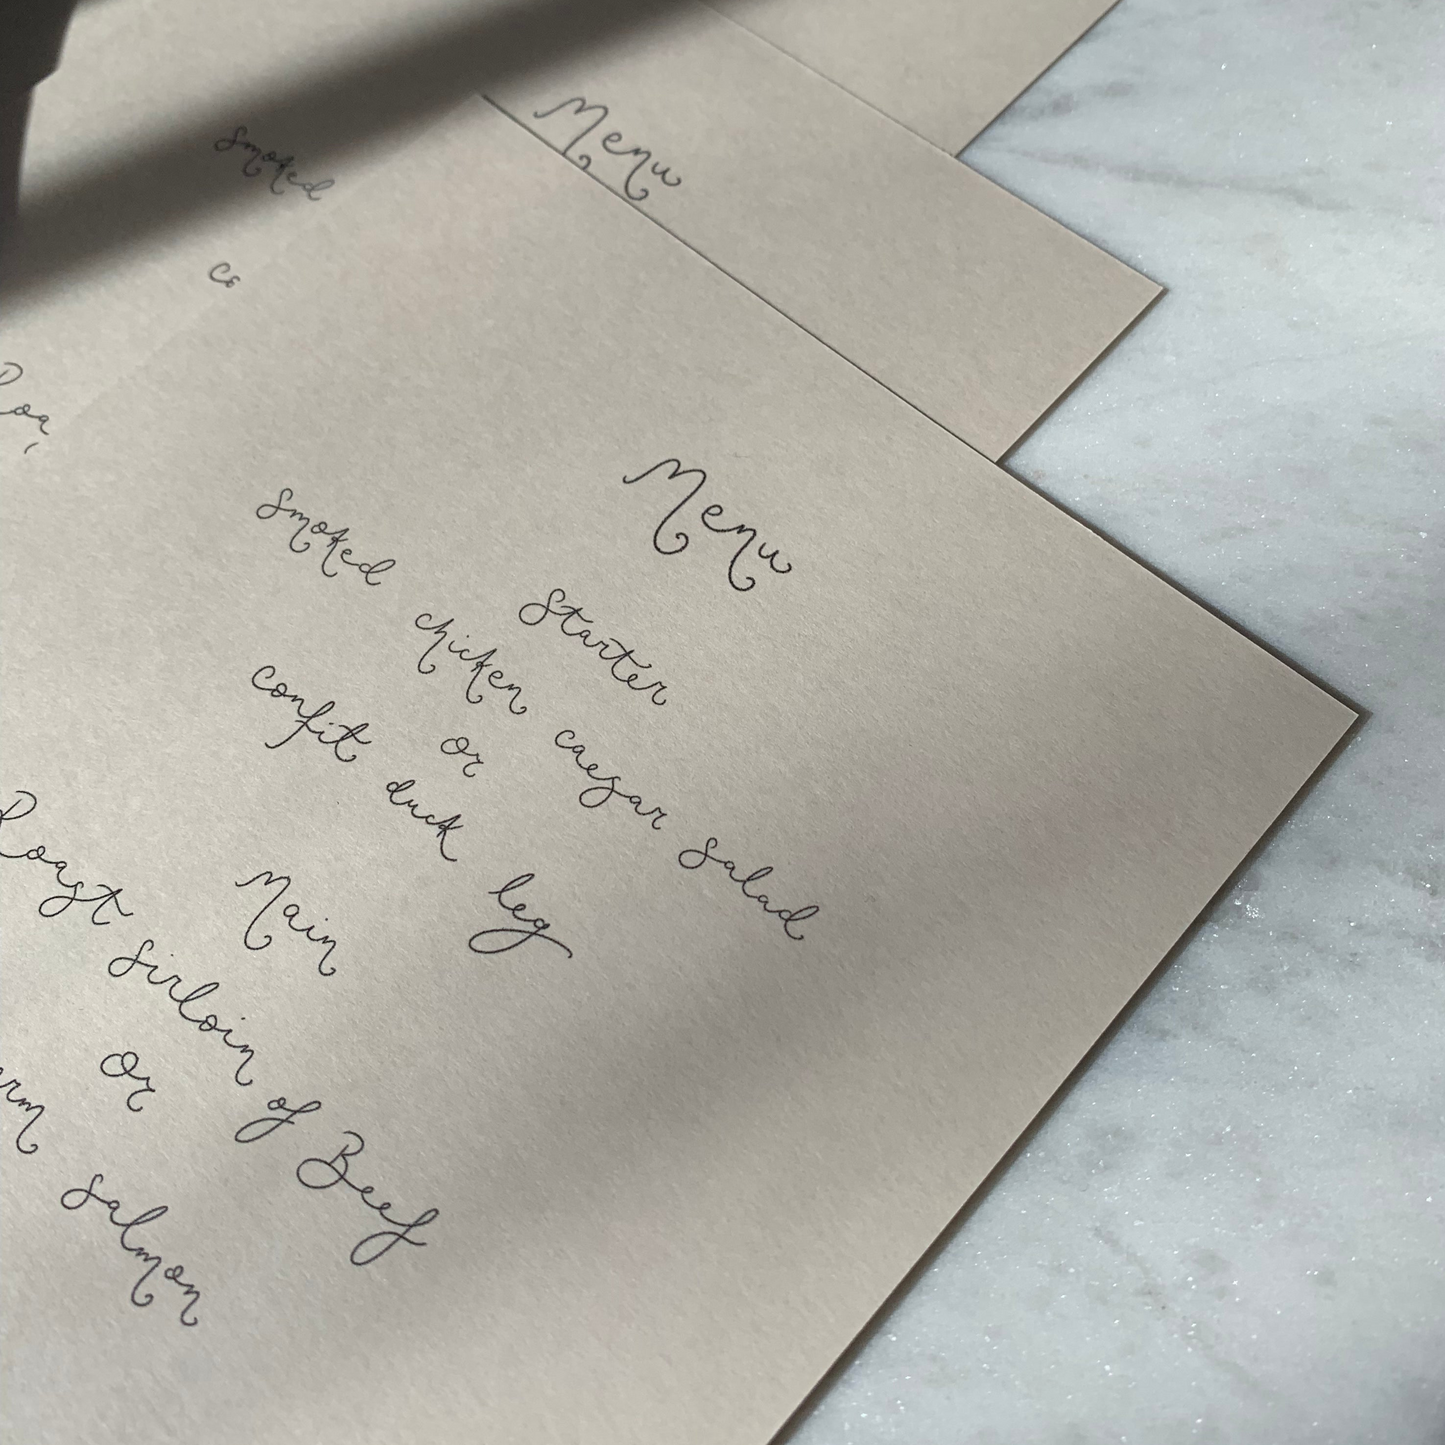 Menu
Smoked
Menu
Starter
Smoked chicken caesar salad
or
confit duck leg
Main
Roast sirloin of Beef
or
salmon